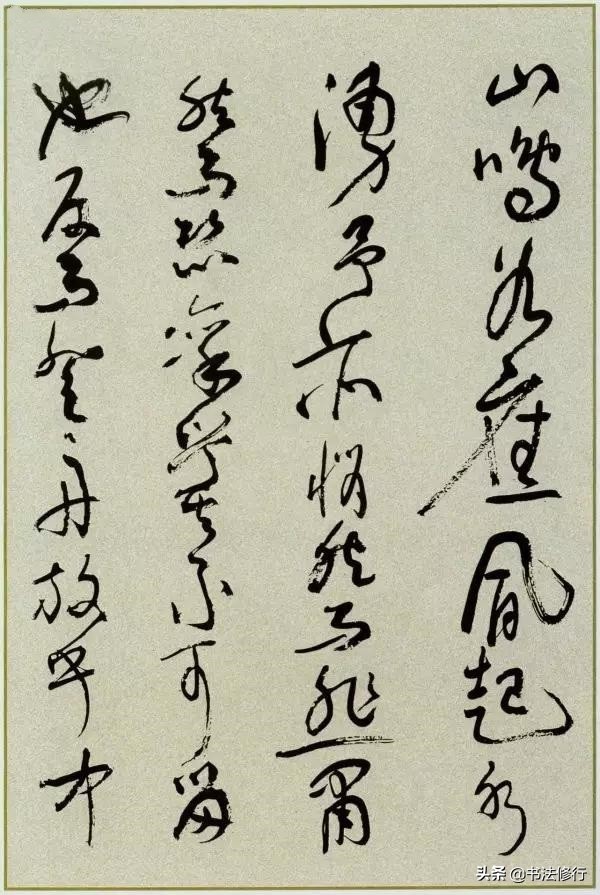 山鳴谷應風起水
湧予亦悄然而悲肅
然而恐凜乎其不可留
也反而登舟放乎中
头条 @书法修行